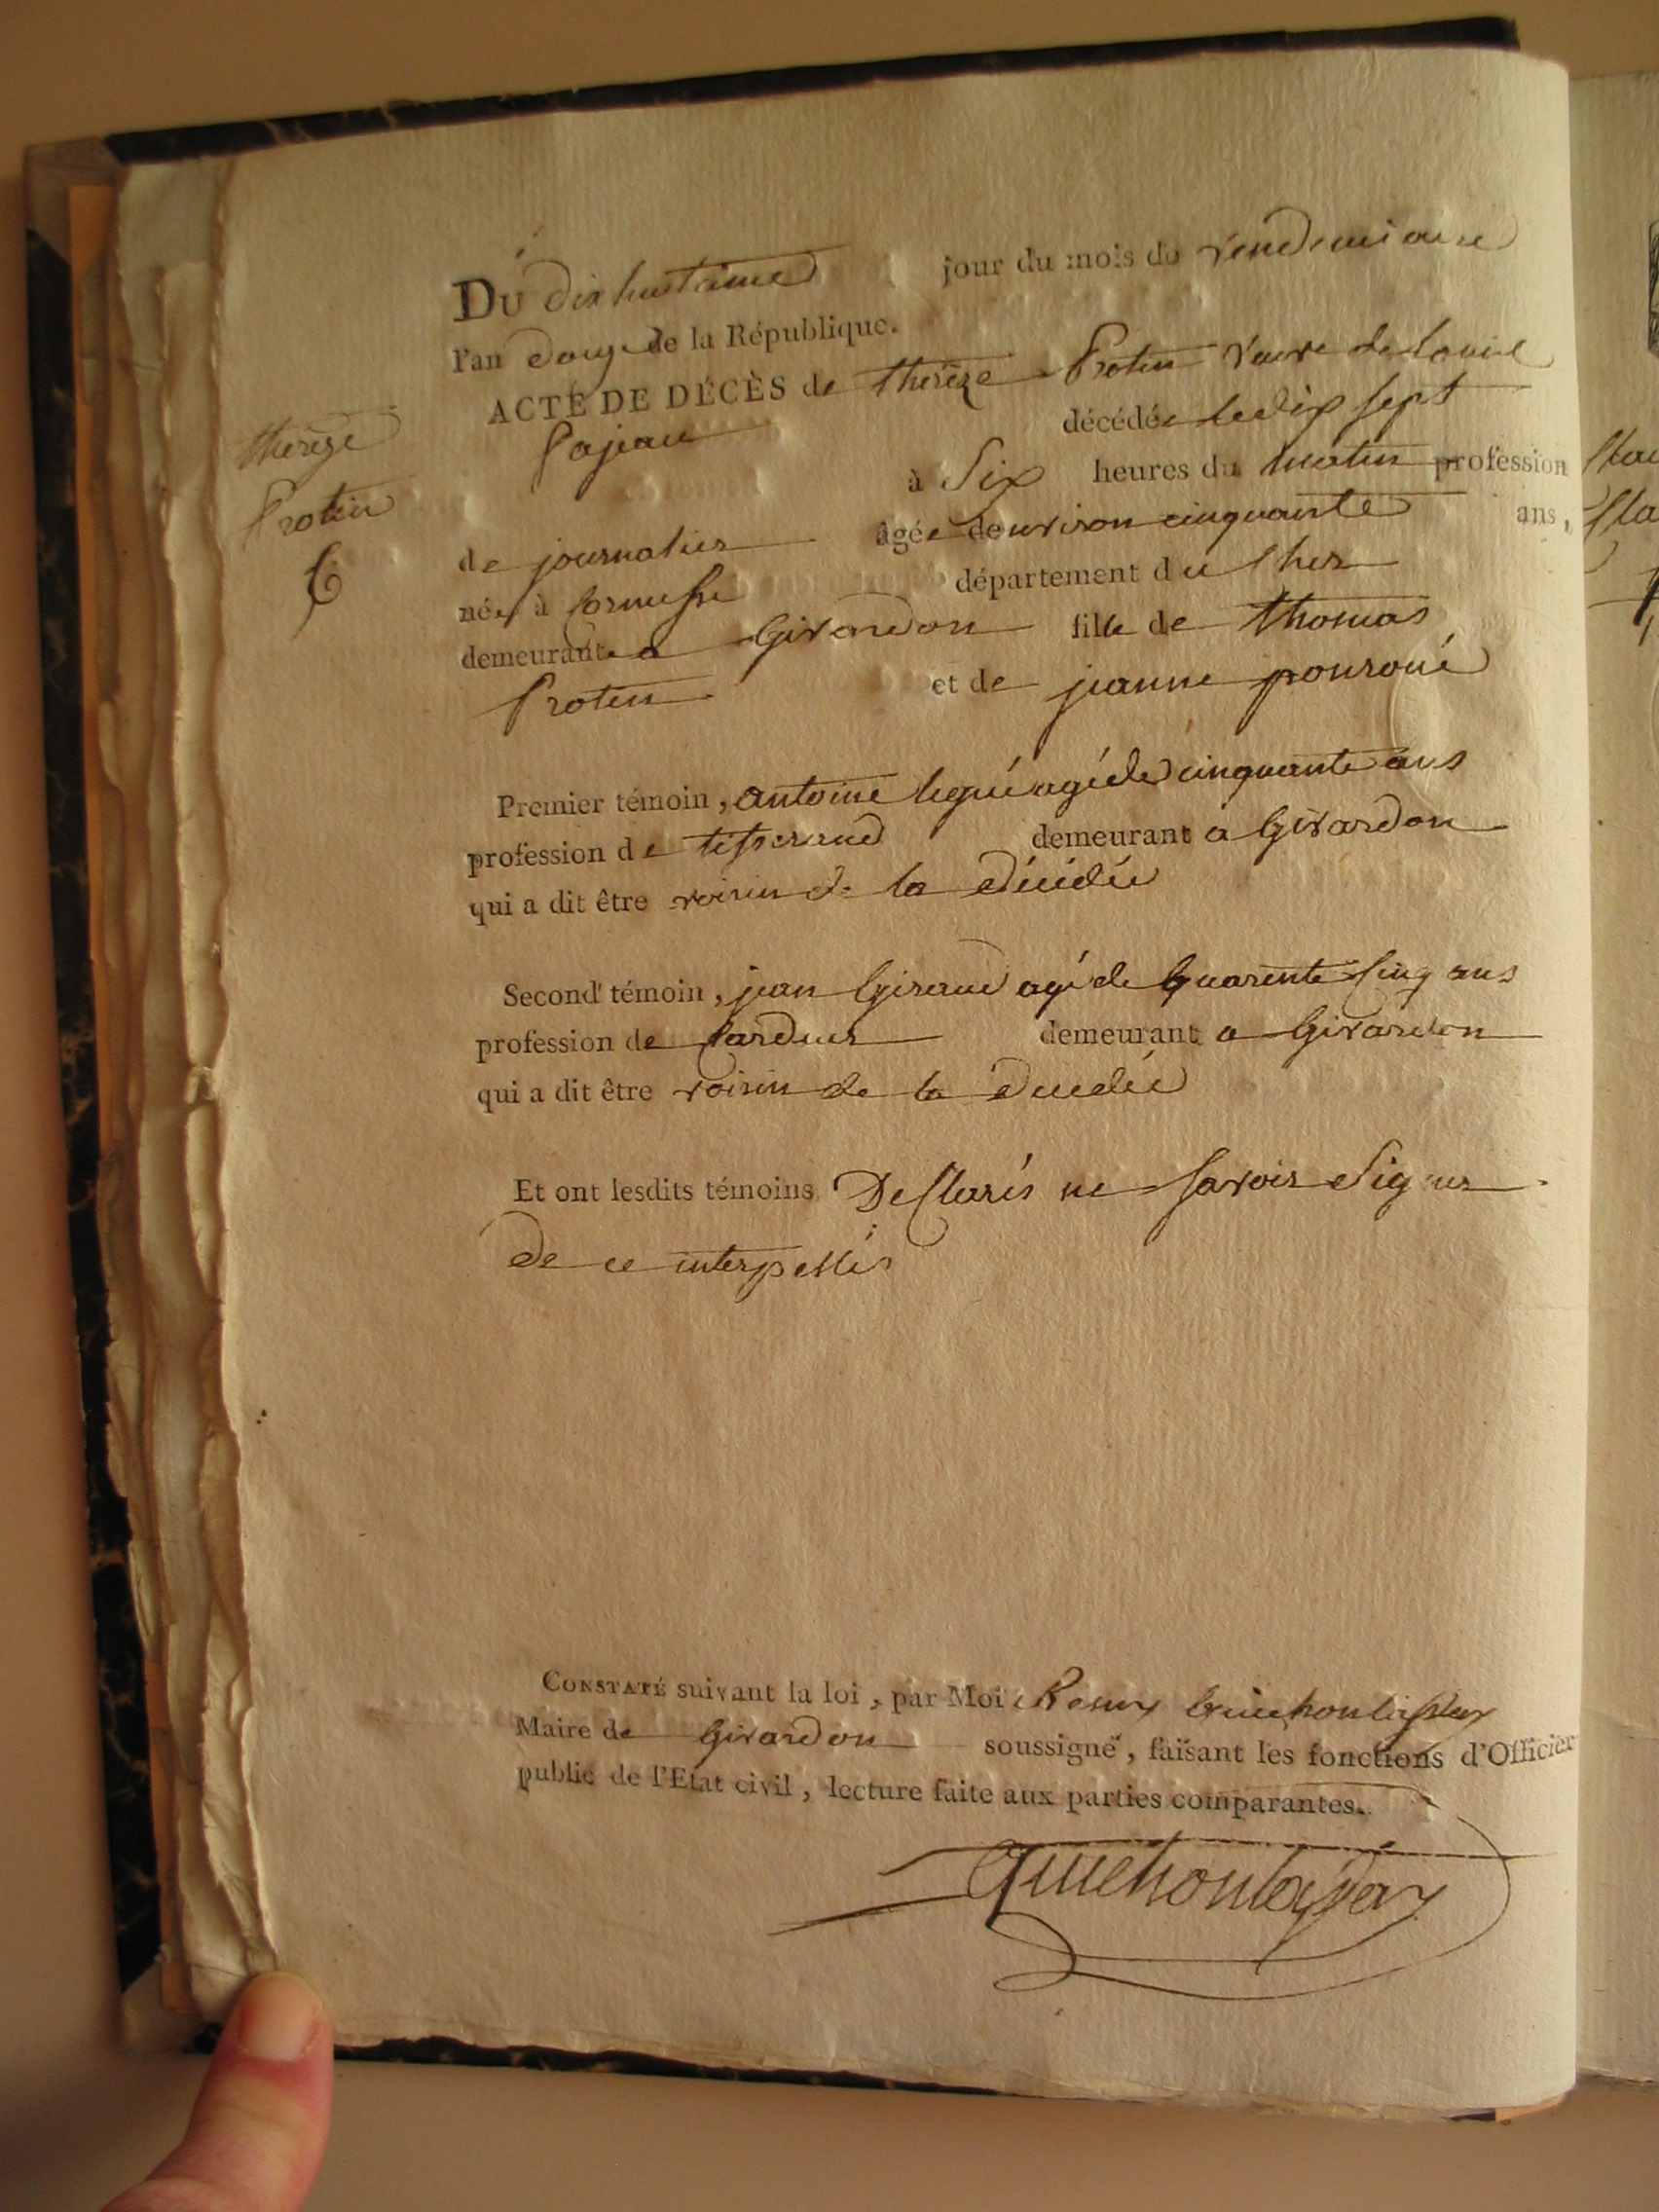 DU dix huitième jour du mois de vendemiaire
l'an douze de la République.
ACTE DE DÉCÈS de thérèze Protin veuve de Louis
Pajeau décédée le dix sept
thérèze
Protin
6
à Six heures du matin profession
de journalier âgée denviron cinquante ans,
née à ormesse département du Cher
demeurante a Givardon fille de thomas
Protin et de jeanne pouroué
Premier témoin, antoine legué agé de cinquante ans
profession de tisserand demeurant a Givardon
qui a dit être voisin de la décédée
Second témoin, jean Giraud agé de quarente cinq ans
profession de cardeur demeurant a Givardon
qui a dit être voisin de la décédée
Et ont lesdits témoins Desclarés ne savoir signer
de ce interpellés
CONSTATÉ suivant la loi, par Moi Remy
Maire de Givardon soussigné, faisant les fonctions d'Officier
public de l'État civil, lecture faite aux parties comparantes.